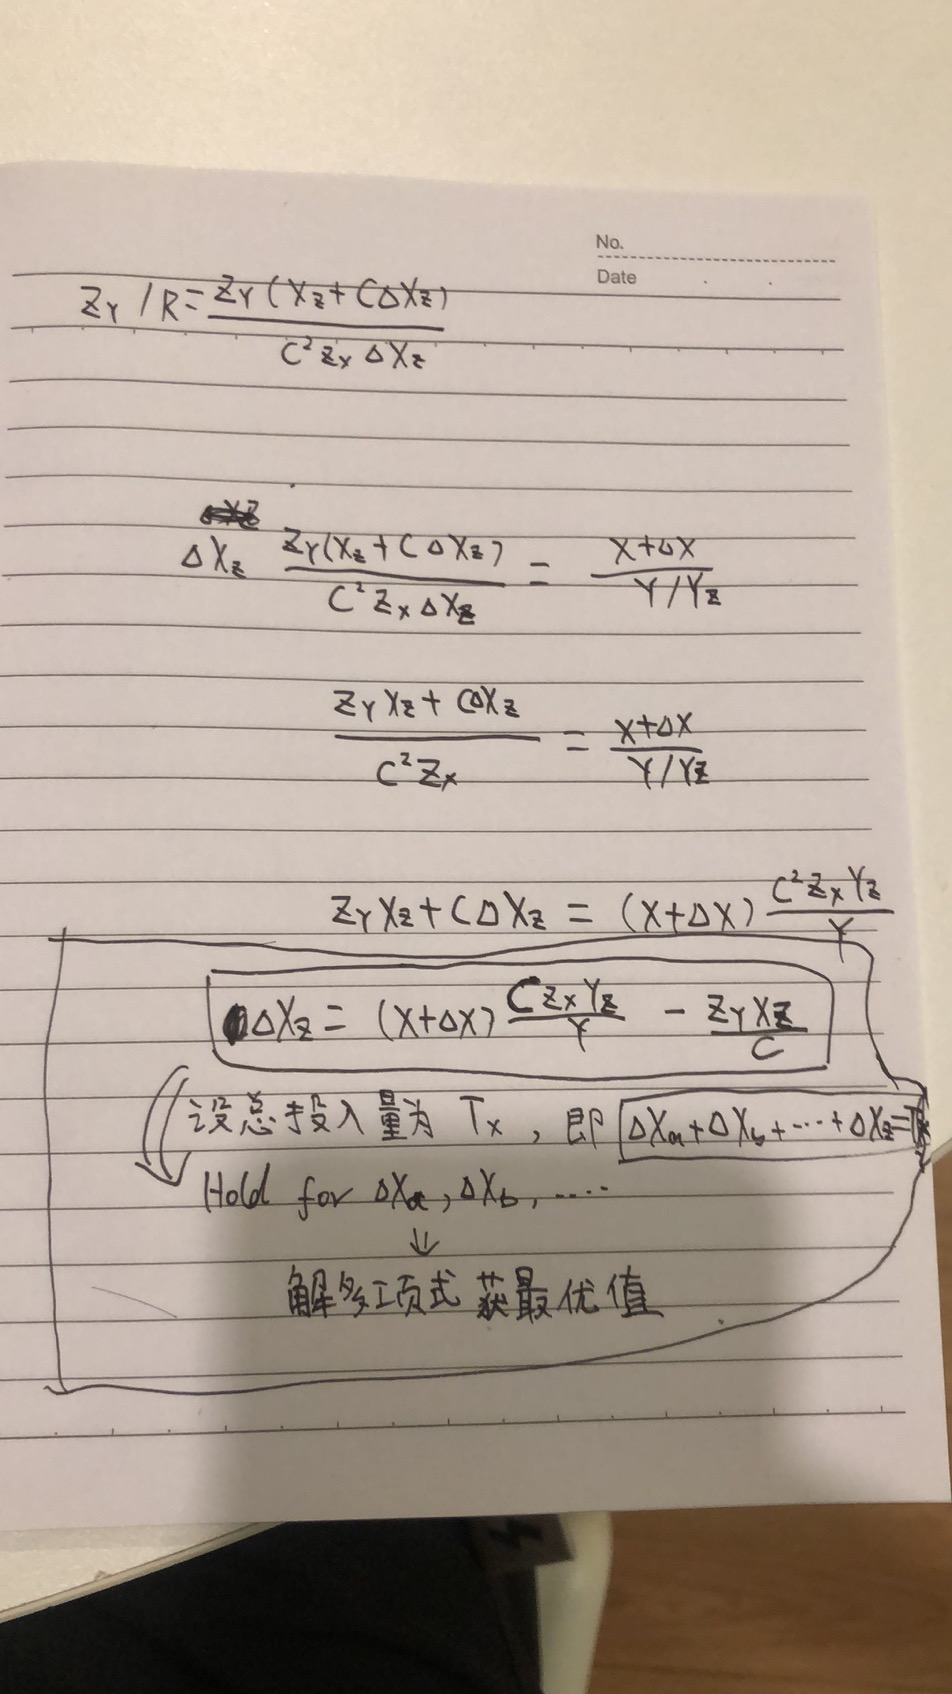 No.
Date
Z_Y / R = \frac{Z_Y (X_Z + C ΔX_Z)}{C² Z_X ΔX_Z}
ΔX_Z \frac{Z_Y (X_Z + C ΔX_Z)}{C² Z_X ΔX_Z} = \frac{X+ΔX}{Y/Y_Z}
\frac{Z_Y X_Z + CΔX_Z}{C² Z_X} = \frac{X+ΔX}{Y/Y_Z}
Z_Y X_Z + CΔX_Z = (X+ΔX) \frac{C² Z_X Y_Z}{Y}
ΔX_Z = (X+ΔX) \frac{C Z_X Y_Z}{Y} - \frac{Z_Y X_Z}{C}
设总投入量为 T_X , 即 ΔX_a + ΔX_b + ... + ΔX_Z = T_X
Hold for ΔX_a, ΔX_b, ....
↓
解多项式 获最优值